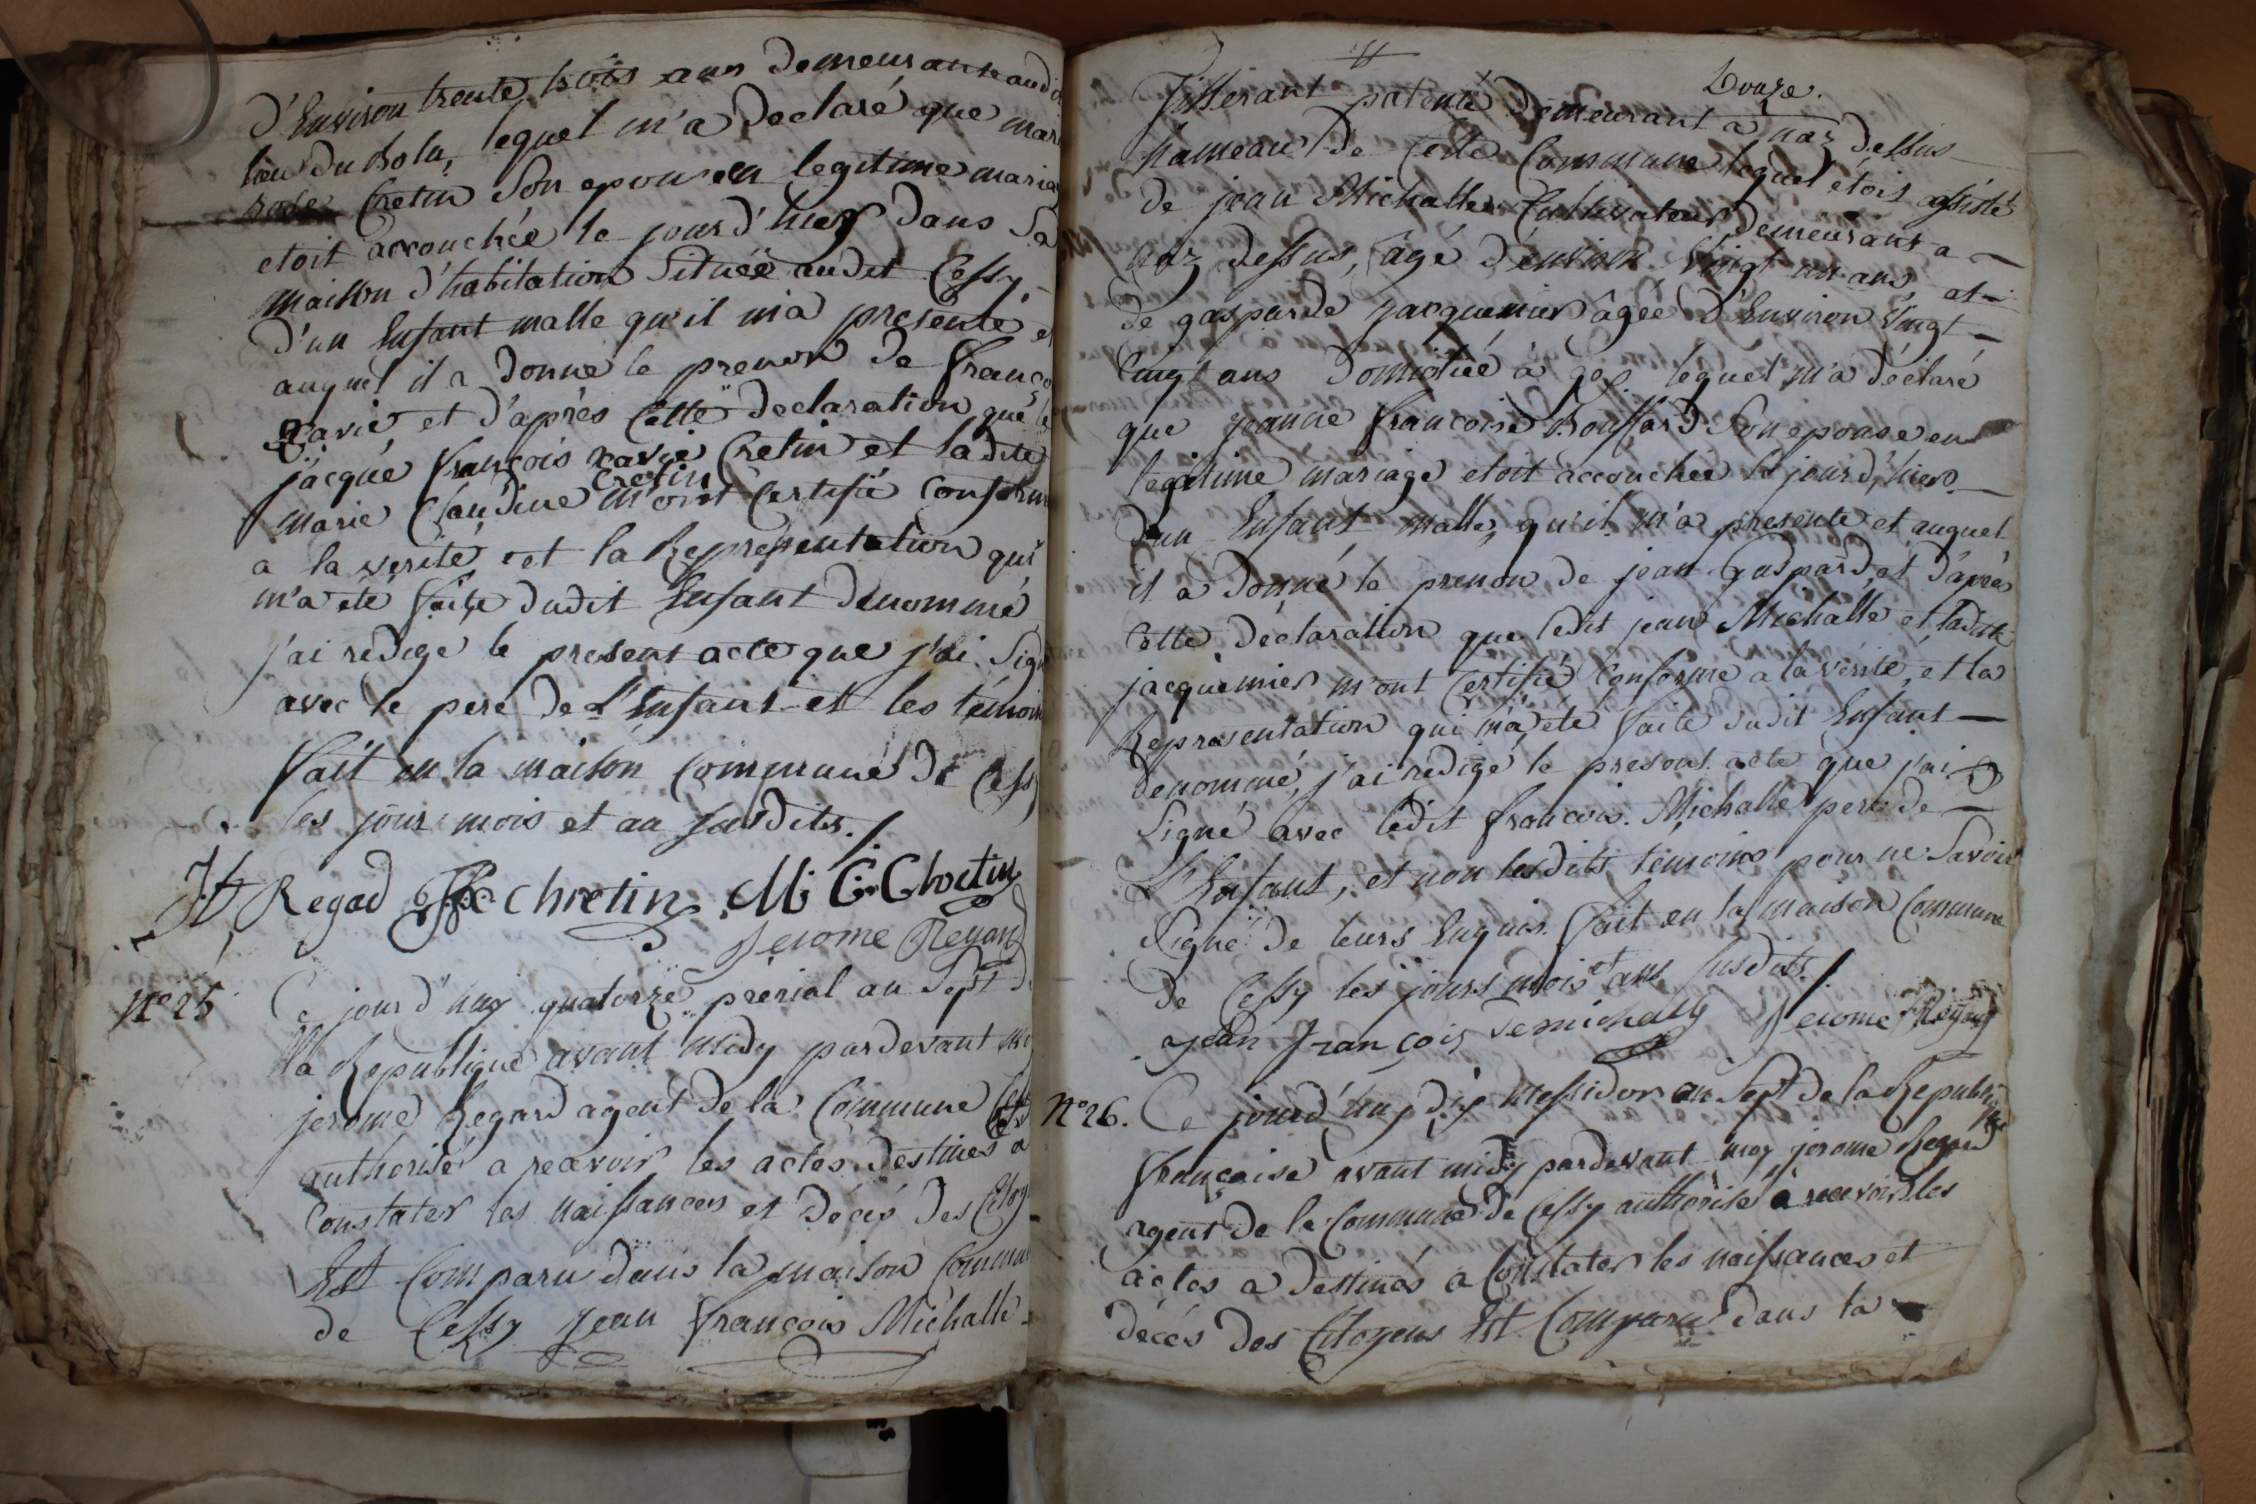 d'Environ trente trois ans demeurante audit
lieu du Bola, lequel m'a declaré que mari
rose Cretin son epouse en legitime maria
etoit accouchée le jourd'hier dans sa
maison d'habitation située audit Cessy,
d'un Enfant malle qu'il m'a presenté et
auquel il a donné le prenon de franço
Xavié et d'après Cette declaration que le
jacque françois xavié Cretin et ladite
Cretin
marie Claudine m'ont Certifié Conforme
a la verité et la Representation qui
m'a eté faite dudit Enfant denommé
j'ai rédigé le present acte que j'ai sign
avec le pere de L'Enfant et les témoin
fait en la maison Commune de Cessy
les jour mois et an susdits./
Regad chretin M C Chretin
Jerome Regard
N° 25 Ce jourd'huy quatorze prerial an Sept d
la Republique avant midy pardevant
jerome Regard agent de la Commune
authorisé a recevoir les actes destinés a
Constater les naissances et décés des Citoy
Est Comparu dans la maison Commun
de Cessy jean françois Michalle
Douze.
Tisserant patenté demeurant à naz dessus
hameau de Cette Commune lequel étois assisté
de jean Michalle Cultivateur demeurant a
naz dessus, agé d'environ Vingt un ans et
de gasparde jacquemier âgée d'Environ Vingt
Cinq ans domiciliée à gex lequel m'a déclaré
que jeanne françoise Boussard son epouse en
legitime mariage etoit accouchée le jourd'hier
d'un Enfant malle, qu'il m'a presenté et auquel
il a donné le prenon de jean Gaspard et d'après
Cette déclaration que ledit jean Michalle et ladite
jacquemier m'ont Certifié Conforme a la vérité, et la
Representation qui m'a eté faite dudit Enfant
denommé, j'ai rédigé le present acte que j'ai
signé avec ledit françois Michalle pere de
L'Enfant, et non lesdits témoins pour ne savoir
signé de leurs Enquis. fait en la maison Commune
de Cessy les jours mois et ans susdits./
jean françois Jerome Regard
N° 26. Ce jourd'huy dix Messidor an Sept de la Republique
française avant midy pardevant moy jerome Regard
agent de la Commune de Cessy authorisé à recevoir les
actes a destinés a Constater les naissances et
décés des Citoyens Est Comparu dans la